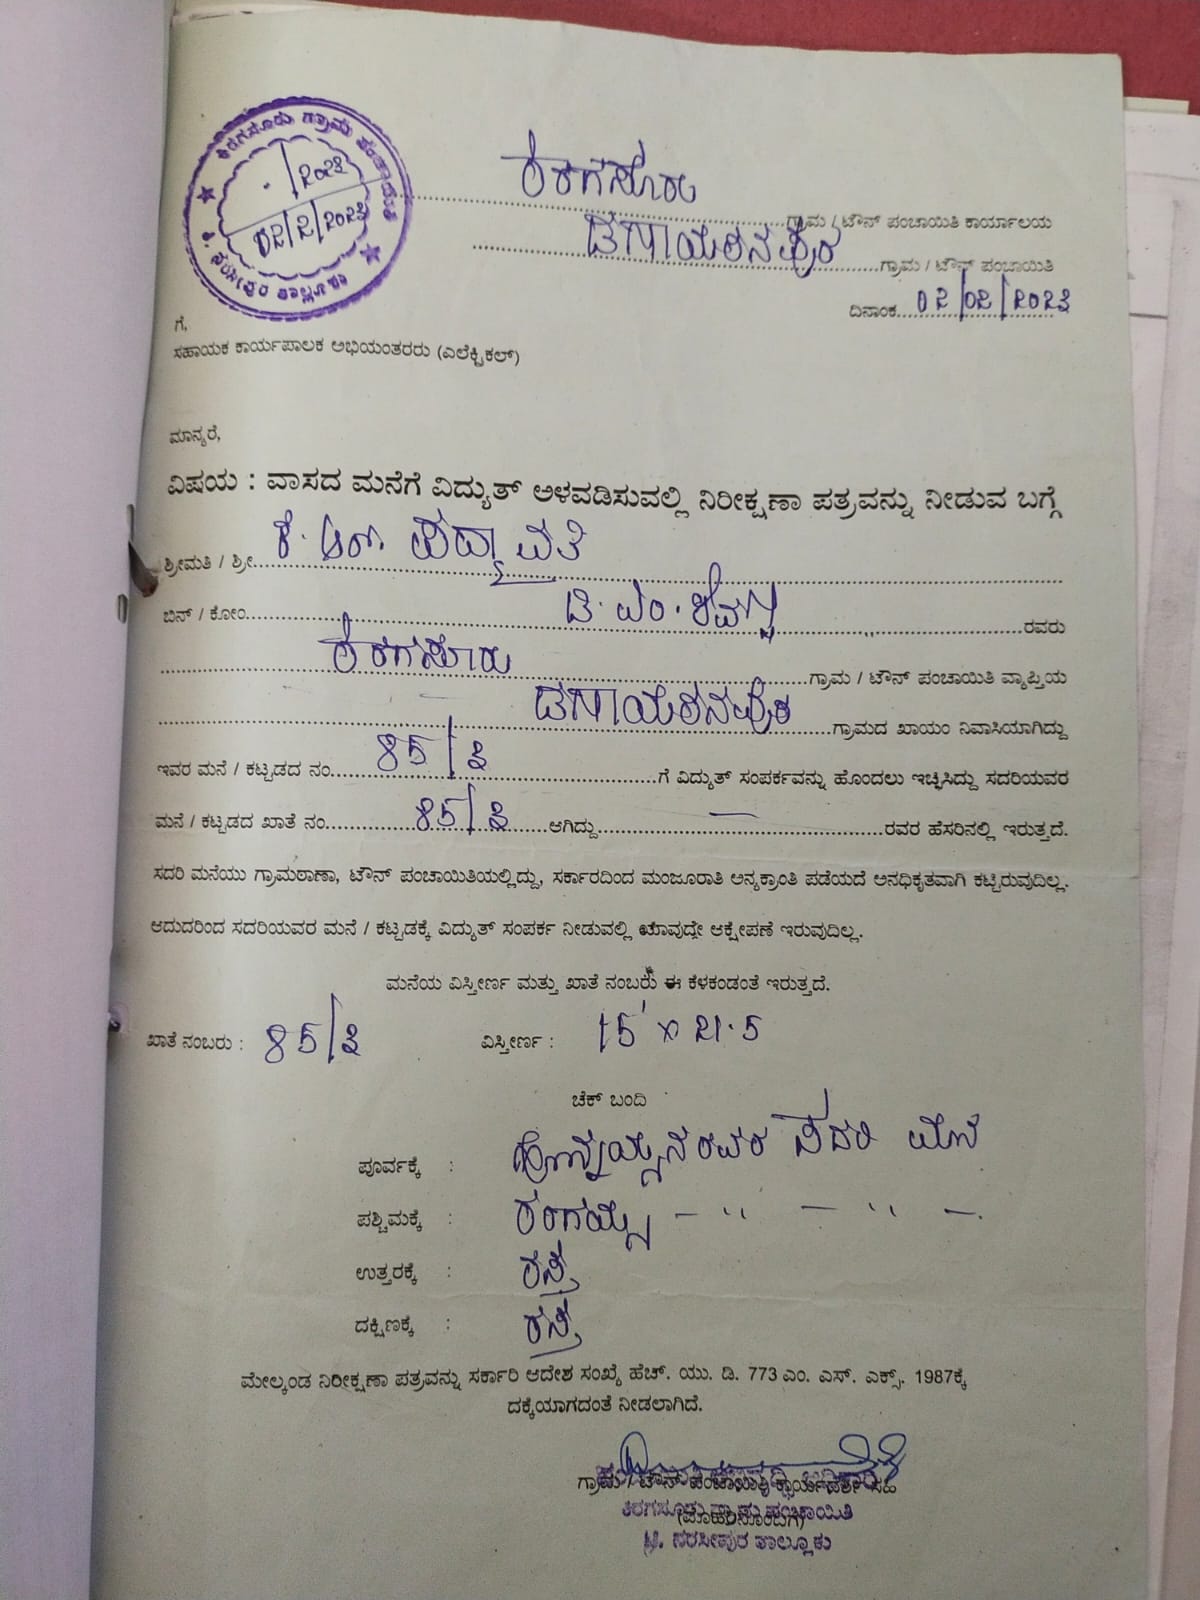 ಕಿರಗಸೂರು ಗ್ರಾಮ ಪಂಚಾಯಿತಿ
/೨೦೨೩
02/2/೨೦೨೩
ಟಿ. ನರಸೀಪುರ ತಾಲ್ಲೂಕು
ಕಿರಗಸೂರು ಗ್ರಾಮ / ಟೌನ್ ಪಂಚಾಯಿತಿ ಕಾರ್ಯಾಲಯ
ಗ್ರಾಮ / ಟೌನ್ ಪಂಚಾಯಿತಿ
ದಿನಾಂಕ 02/02/೨೦೨೩
ಗೆ,
ಸಹಾಯಕ ಕಾರ್ಯಪಾಲಕ ಅಭಿಯಂತರರು (ಎಲೆಕ್ಟ್ರಿಕಲ್)
ಮಾನ್ಯರೆ,
ವಿಷಯ : ವಾಸದ ಮನೆಗೆ ವಿದ್ಯುತ್ ಅಳವಡಿಸುವಲ್ಲಿ ನಿರೀಕ್ಷಣಾ ಪತ್ರವನ್ನು ನೀಡುವ ಬಗ್ಗೆ
ಶ್ರೀಮತಿ / ಶ್ರೀ. ಕೆ. ಆರ್. ಪದ್ಮಾವತಿ
ಬಿನ್ / ಕೋಂ ಟಿ. ಎಂ. ಶಿವಣ್ಣ ರವರು
ಕಿರಗಸೂರು ಗ್ರಾಮ / ಟೌನ್ ಪಂಚಾಯಿತಿ ವ್ಯಾಪ್ತಿಯ
ಗ್ರಾಮದ ಖಾಯಂ ನಿವಾಸಿಯಾಗಿದ್ದು
ಇವರ ಮನೆ / ಕಟ್ಟಡದ ನಂ. 85/೩ ಗೆ ವಿದ್ಯುತ್ ಸಂಪರ್ಕವನ್ನು ಹೊಂದಲು ಇಚ್ಛಿಸಿದ್ದು ಸದರಿಯವರ
ಮನೆ / ಕಟ್ಟಡದ ಖಾತೆ ನಂ. 85/೩ ಆಗಿದ್ದು — ರವರ ಹೆಸರಿನಲ್ಲಿ ಇರುತ್ತದೆ.
ಸದರಿ ಮನೆಯು ಗ್ರಾಮಠಾಣಾ, ಟೌನ್ ಪಂಚಾಯಿತಿಯಲ್ಲಿದ್ದು, ಸರ್ಕಾರದಿಂದ ಮಂಜೂರಾತಿ ಅನ್ಯಕ್ರಾಂತಿ ಪಡೆಯದೆ ಅನಧಿಕೃತವಾಗಿ ಕಟ್ಟಿರುವುದಿಲ್ಲ.
ಆದುದರಿಂದ ಸದರಿಯವರ ಮನೆ / ಕಟ್ಟಡಕ್ಕೆ ವಿದ್ಯುತ್ ಸಂಪರ್ಕ ನೀಡುವಲ್ಲಿ ಯಾವುದೇ ಆಕ್ಷೇಪಣೆ ಇರುವುದಿಲ್ಲ.
ಮನೆಯ ವಿಸ್ತೀರ್ಣ ಮತ್ತು ಖಾತೆ ನಂಬರು ಈ ಕೆಳಕಂಡಂತೆ ಇರುತ್ತದೆ.
ಖಾತೆ ನಂಬರು : 85/೩ ವಿಸ್ತೀರ್ಣ : 15' x 21.5
ಚೆಕ್ ಬಂದಿ
ಪೂರ್ವಕ್ಕೆ : ರವರ ಮನೆ
ಪಶ್ಚಿಮಕ್ಕೆ : ರಂಗಯ್ಯ — " — " —.
ಉತ್ತರಕ್ಕೆ : ರಸ್ತೆ
ದಕ್ಷಿಣಕ್ಕೆ : ರಸ್ತೆ
ಮೇಲ್ಕಂಡ ನಿರೀಕ್ಷಣಾ ಪತ್ರವನ್ನು ಸರ್ಕಾರಿ ಆದೇಶ ಸಂಖ್ಯೆ ಹೆಚ್. ಯು. ಡಿ. 773 ಎಂ. ಎಸ್. ಎಕ್ಸ್. 1987ಕ್ಕೆ
ದಕ್ಕೆಯಾಗದಂತೆ ನೀಡಲಾಗಿದೆ.
ಗ್ರಾಮ / ಟೌನ್ ಪಂಚಾಯಿತಿ ಕಾರ್ಯದರ್ಶಿ ಸಹಿ
(ಮೊಹರಿನೊಂದಿಗೆ)
ಕಿರಗಸೂರು ಗ್ರಾಮ ಪಂಚಾಯಿತಿ
ಟಿ. ನರಸೀಪುರ ತಾಲ್ಲೂಕು